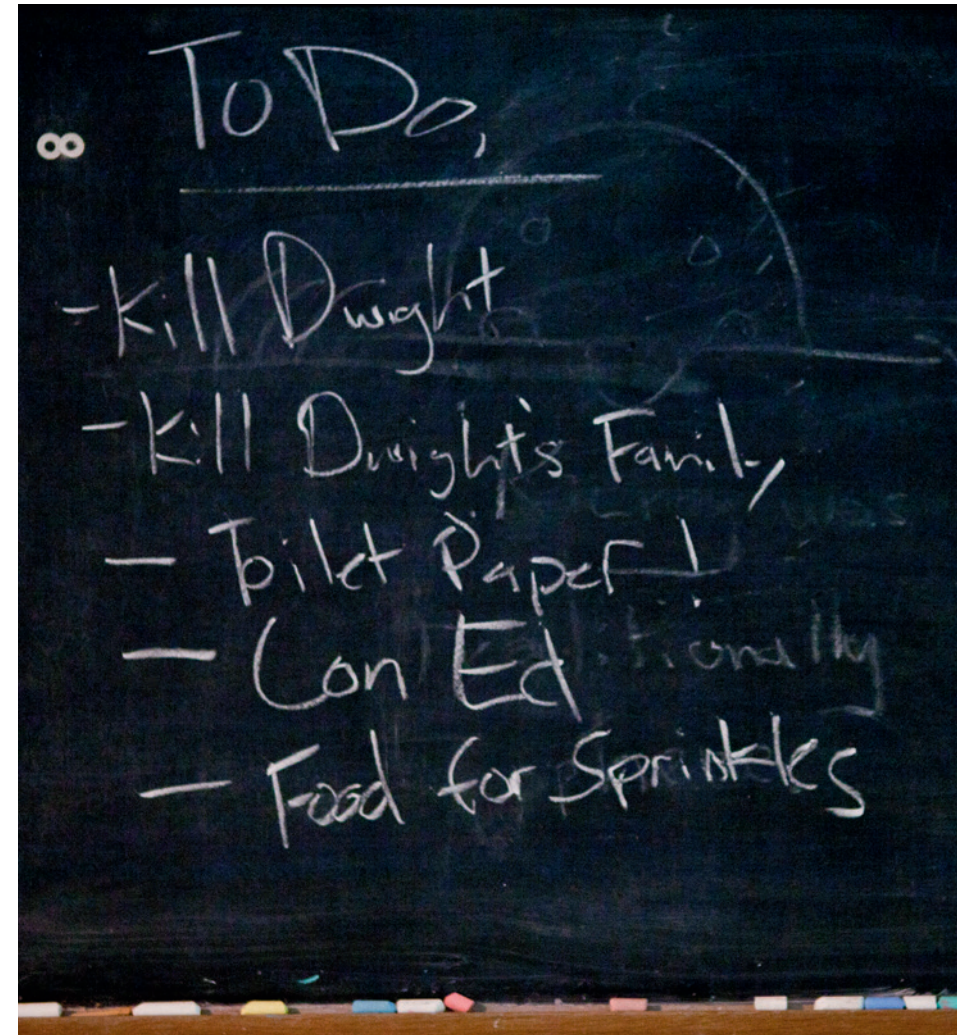 To Do,
- Kill Dwight
- Kill Dwight's Family
- Toilet Paper!
- Con Ed
- Food for Sprinkles